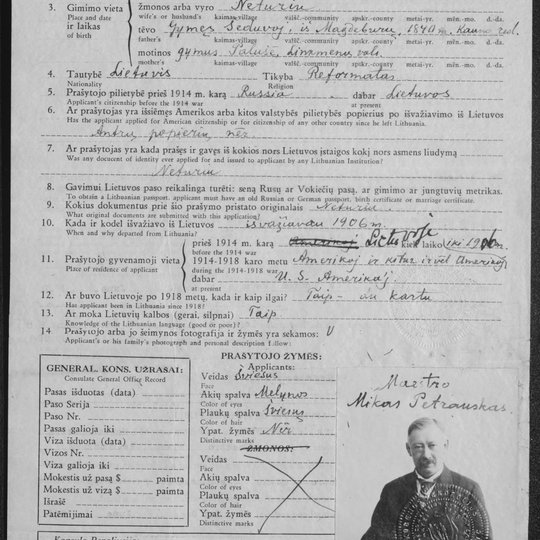 3. Gimimo vieta
Place and date
ir laikas
of birth
žmonos arba vyro Neturiu
wife's or husband's kaimas-village valšč.-community apskr.-county metai-yr. mėn.-mo. d.-da.
tėvo Gymęs Šeduvoj, iš Magdeburų, 1840 m. Kauno
father's kaimas-village valšč.-community apskr.-county metai-yr. mėn.-mo. d.-da.
motinos gymus Palušė, Linmenus vols.
mother's kaimas-village valšč.-community apskr.-county metai-yr. mėn.-mo. d.-da.
4. Tautybė Lietuvis Tikyba Reformatas
Nationality Religion
5. Prašytojo pilietybė prieš 1914 m. karą Russia dabar Lietuvos
Applicant's citizenship before the 1914 war at present
6. Ar prašytojas yra išsiėmęs Amerikos arba kitos valstybės pilietybės popierius po išvažiavimo iš Lietuvos
Has the applicant applied for American citizenship or for citizenship of any other country since he left Lithuania.
Antrų popierių nėr
7. Ar prašytojas yra kada prašęs ir gavęs iš kokios nors Lietuvos įstaigos kokį nors asmens liudymą
Was any document of identity ever applied for and issued to applicant by any Lithuanian Institution?
Neturiu
8. Gavimui Lietuvos paso reikalinga turėti: seną Rusų ar Vokiečių pasą, ar gimimo ar jungtuvių metrikas.
To obtain a Lithuanian passport, applicant must have an old Russian or German passport, birth certificate or marriage certificate.
9. Kokius dokumentus prie šio prašymo pristato originalais Neturiu
What original documents are submitted with this application?
10. Kada ir kodel išvažiavo iš Lietuvos išvažiavau 1906 m.
When and why departed from Lithuania?
11. Prašytojo gyvenamoji vieta
Place of residence of applicant
prieš 1914 m. karą Lietuvoje kiek laiko iki 1906 m.
1914-1918 karo metu Amerikoj ir kitur ir vėl Amerikoj
during the 1914-1918 war
dabar U. S. Amerikoj
at present
12. Ar buvo Lietuvoje po 1918 metų, kada ir kaip ilgai? Taip - du kartu
Has applicant been in Lithuania since 1918?
13. Ar moka Lietuvių kalbos (gerai, silpnai) Taip
Knowledge of the Lithuanian language (good or poor)?
14 Prašytojo arba jo šeimynos fotografija ir žymės yra sekamos: V
Applicant's or his family's photograph and personal description follow:
GENERAL. KONS. UŽRAŠAI:
Consulate General Office Record
Pasas išduotas (data)
Paso Serija
Paso Nr.
Pasas galioja iki
Viza išduota (data)
Vizos Nr.
Viza galioja iki
Mokestis už pasą $ paimta
Mokestis už vizą $ paimta
Išrašė
Patėmijimai
PRAŠYTOJO ŽYMĖS:
Applicants:
Veidas Šviesus
Face
Akių spalva Melynos
Color of eyes
Plaukų spalva Šviesus
Color of hair
Ypat. žymės Nėr
Distinctive marks
ŽMONOS:
Veidas
Face
Akių spalva
Color of eyes
Plaukų spalva
Color of hair
Ypat. žymės
Distinctive marks
Maestro
Mikas Petrauskas